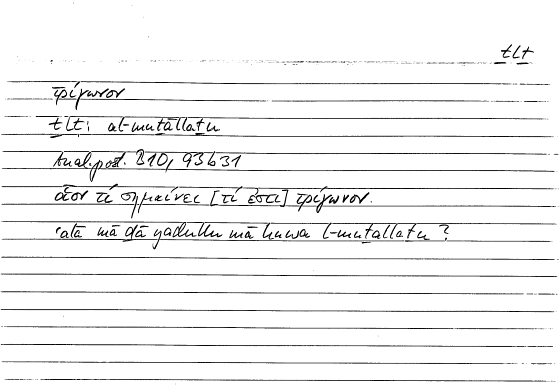 ṯlṯ
τρίγωνον
ṯlṯ: al-muṯallaṯu
Anal. post. B10, 93b31
οἷον τί σημαίνει [τί ἐστι] τρίγωνον.
ʿalā mā ḏā yadullu mā huwa l-muṯallaṯu?